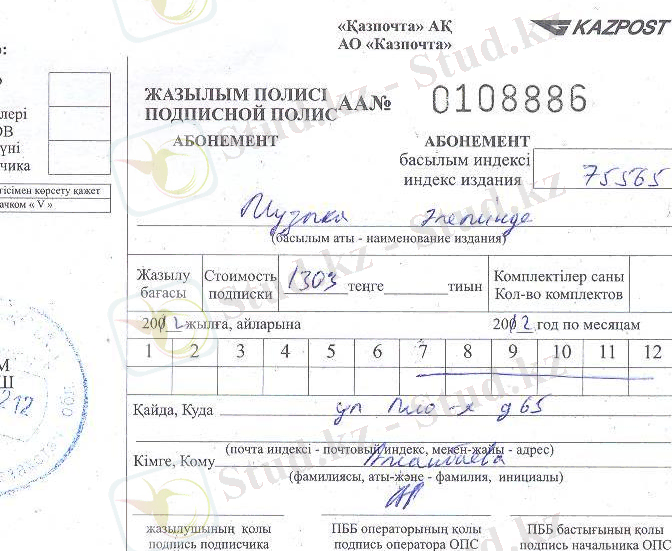 «Қазпочта» АҚ
АО «Казпочта»
KAZPOST
ЖАЗЫЛЫМ ПОЛИСІ
ПОДПИСНОЙ ПОЛИС АА№ 0108886
АБОНЕМЕНТ
АБОНЕМЕНТ
басылым индексі
индекс издания 75565
Музыка әлемінде
(басылым аты - наименование издания)
Жазылу бағасы
Стоимость подписки 1303 теңге тиын
Комплектілер саны
Кол-во комплектов
2012 жылға, айларына
2012 год по месяцам
1 2 3 4 5 6 7 8 9 10 11 12
Қайда, Куда ул д 65
(почта индексі - почтовый индекс, мекен-жайы - адрес)
Кімге, Кому
(фамилиясы, аты-және - фамилия, инициалы)
жазылушының қолы
подпись подписчика
ПББ операторының қолы
подпись оператора ОПС
ПББ бастығының қолы
подпись начальника ОПС
лері
ОВ
үні
чика
гісімен көрсету қажет
ачком « V »
Stud.kz - Stud.kz
Stud.kz - Stud.kz
Stud.kz - Stud.kz